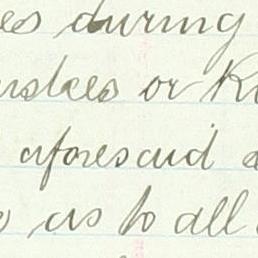 es during
ustees or R
aforesaid a
as to all